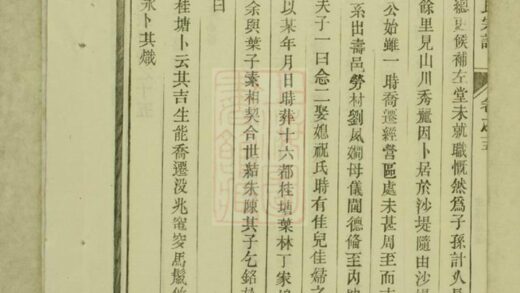 氏宗譜 卷之五
總吏候補左堂未就職慨然為子孫計久長
餘里見山川秀麗因卜居於沙堤隨由沙
公始雖一時喬遷經營區處未甚周至而
系出壽邑勞村劉鳳嫺母儀閫德脩至內
夫子一曰念二娶媳祝氏時有佳兒佳婦之
以某年月日時葬十六都桂塘葉林丁家
余與葉子素相契合世結朱陳其子乞銘於
曰
桂塘卜云其吉生能喬遷沒兆窀穸馬鬣
永卜其熾